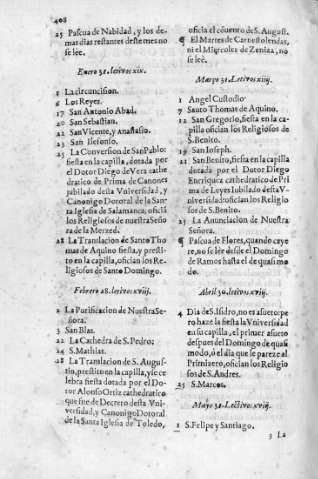 408
25 Pascua de Nabidad, y los de-
mas dias restantes deste mes no
se lee.
Enero 31. lectivos xix.
1 La circuncision.
6 Los Reyes.
17 San Antonio Abad.
20 San Sebastian.
22 San Vicente, y anastasio.
23 San Ilefonso.
25 La Conversion de San Pablo:
fiesta en la capilla, dotada por
el Dotor Diego de Vera cathe
dratico de Prima de Canones
jubilado desta Vniversidad, y
Canonigo Dororal de la San-
ta Iglesia de Salamanca, oficiã
los Religiosos de nuestra Seño
ra de la Merzed.
28 La Translacion de Santo Tho
mas de Aquino fiesta, y presti-
to en la capilla, ofician los Re-
ligiosos de Santo Domingo.
Febrero 28. lectivos xviij.
2 La Purificacion de Nuestra Se-
ñora.
3 San Blas.
22 La Cathedra de S. Pedro:
24 S. Mathias.
28 La Translacion de S. Augus-
tin, prestito en la capilla, y se ce
lebra fiesta dotada por el Do-
tor Alonso Ortiz cathedratico
que fue de Decreto desta Vni-
versidad, y Canonigo Dotoral
de la Santa Iglesia de Toledo,
oficia el cõvento de S. August.
¶ El Martes de Carnestolendas,
ni el Miercoles de Zeniza, no
se lee.
Março 31. Lectivos xiiij.
1 Angel Custodio
7 Santo Thomas de Aquino.
12 San Gregorio, fiesta en la ca-
pilla ofician los Religiosos de
S. Benito.
19 San Joseph.
21 San Benito, fiesta en la capilla
dotada por el Dotor Diego
Enriquez cathedratico de Pri
ma de Leyes Iubilado desta V-
niversidad ofician los Religio-
sos de S. Benito.
25 La Anunciacion de Nuestra
Señora.
¶ Pascua de Flores, quando caye
re, no se lee desde el Domingo
de Ramos hasta el de quasimo
do.
Abril 30. lectivos xvij.
4 Dia de S. Isidro, no es asueto: pe
ro haze la fiesta la Vniversidad
en su capilla, el primer asueto
despues del Domingo de quasi
modo, ò el dia que le pareze al
Primizero, ofician los Religio
sos de S. Andres.
25 S. Marcos.
Mayo 31. Lectivos. xviij.
1 S. Felipe y Santiago.
3 La